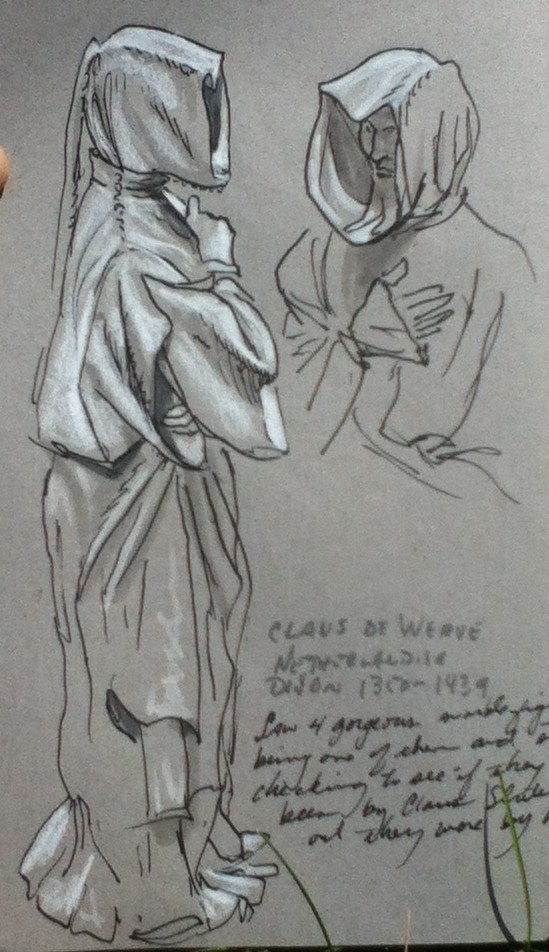 CLAUS DE WERVE
NETHERLAND
DIJON 1380-1439
Saw 4 gorgeous marble
being one of them and
checking to see if they
been by Claus Sluter
out they were by